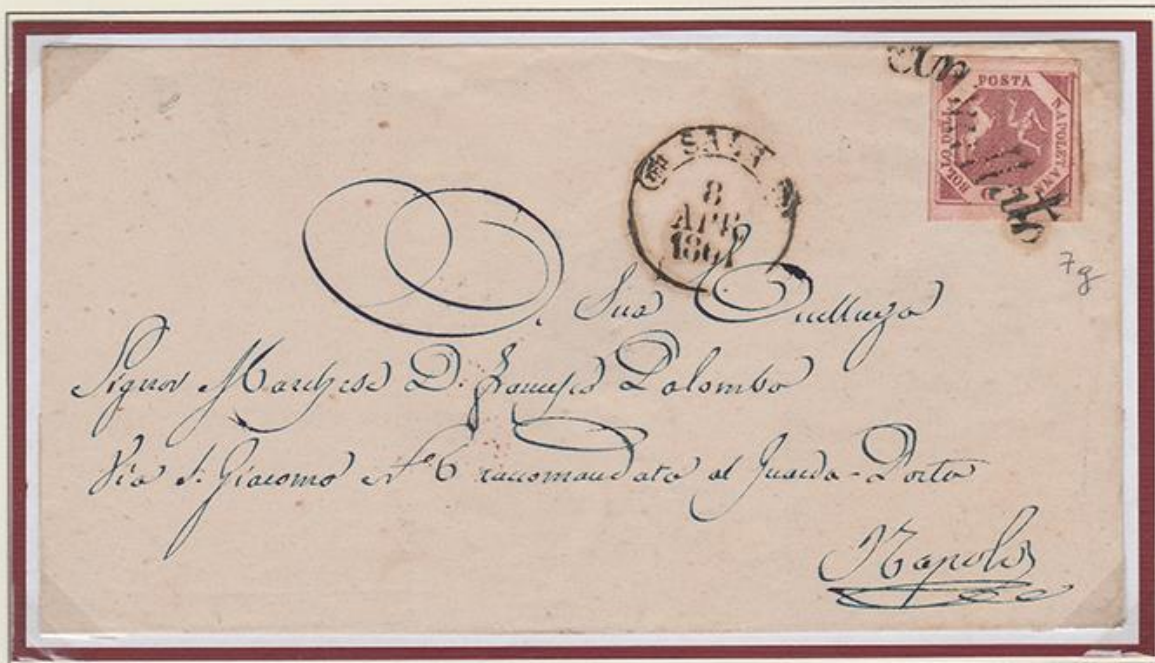 POSTA
NAPOLETANA
BOLLO
SALA
8
APR
1861
7g
A Sua Eccellenza
Signor Marchese D. Palombo
Via S. Giacomo N° 6 raccomandata al Guarda-Porta
Napoli